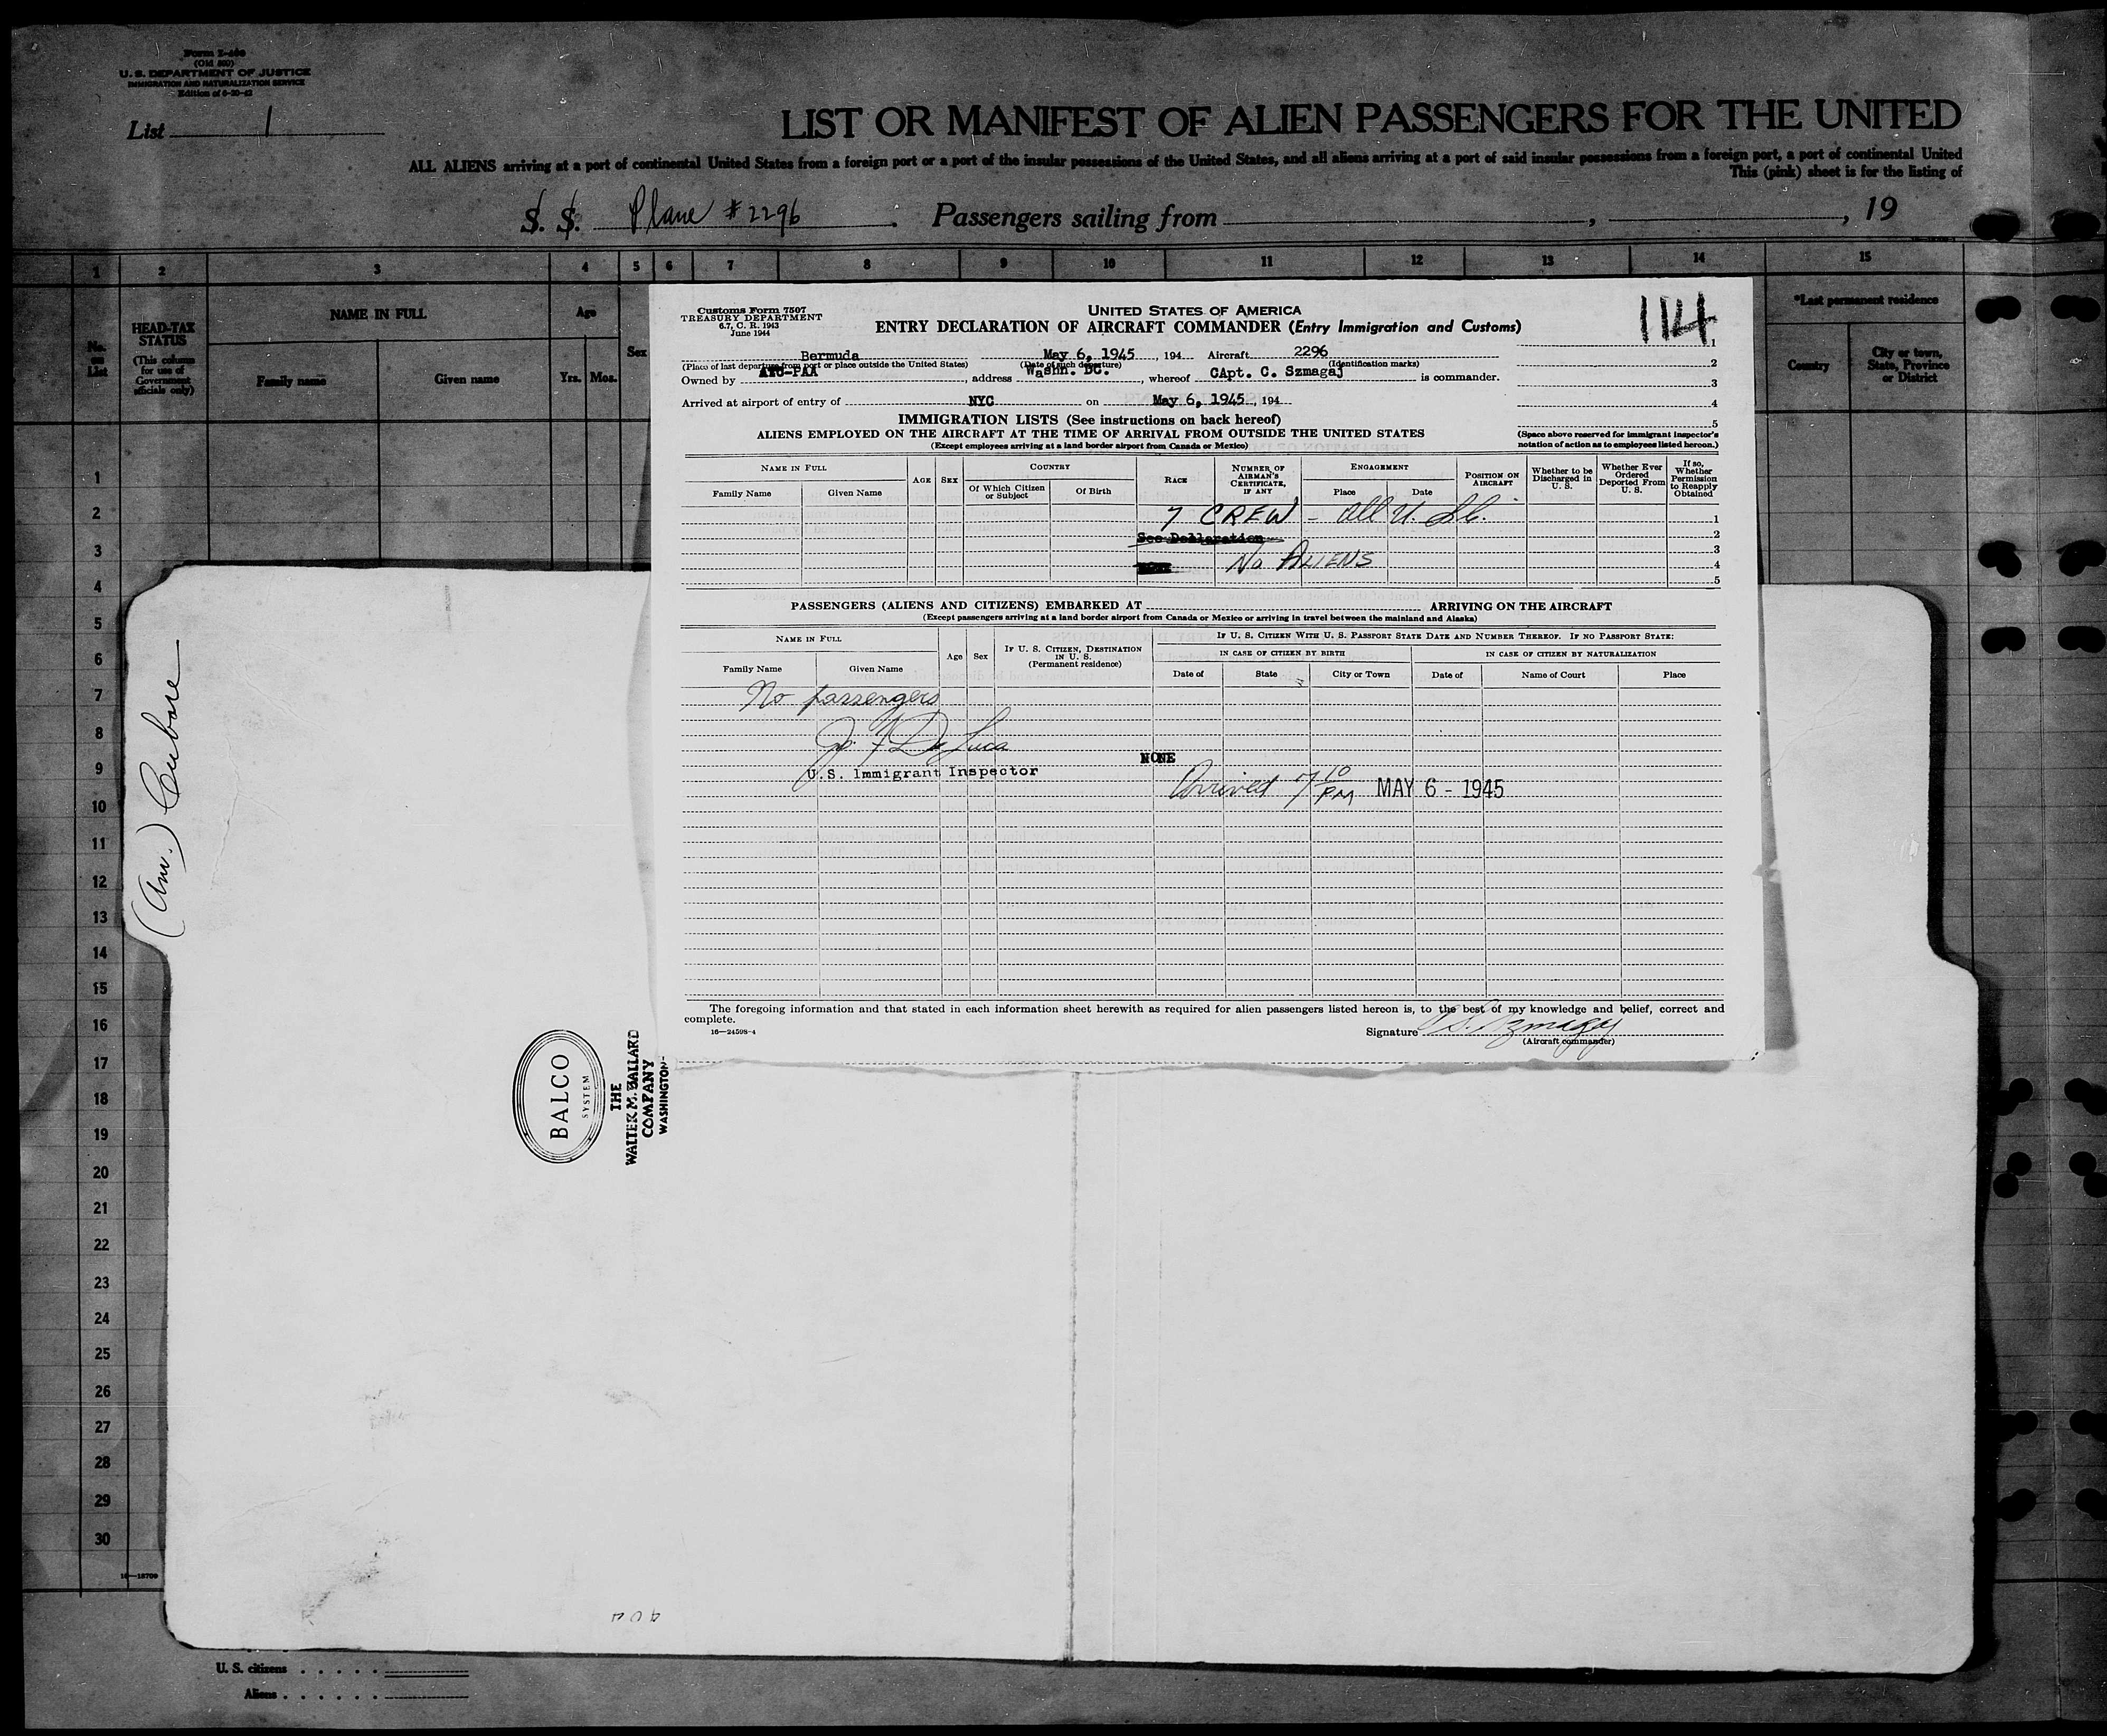 Form I-466
(Old 500)
U. S. DEPARTMENT OF JUSTICE
IMMIGRATION AND NATURALIZATION SERVICE
Edition of 6-20-42
List 1
LIST OR MANIFEST OF ALIEN PASSENGERS FOR THE UNITED
ALL ALIENS arriving at a port of continental United States from a foreign port or a port of the insular possessions of the United States, and all aliens arriving at a port of said insular possessions from a foreign port, a port of continental United
This (pink) sheet is for the listing of
S. S. Plane #2296. Passengers sailing from , , 19
1 2 3 4 5 6 7 8 9 10 11 12 13 14 15
No. on List
HEAD-TAX STATUS
(This column for use of Government officials only)
NAME IN FULL
Family name Given name
Age
Yrs. Mos.
Sex
*Last permanent residence
Country City or town, State, Province or District
Customs Form 7507
TREASURY DEPARTMENT
6.7, C. R. 1943
June 1944
UNITED STATES OF AMERICA
ENTRY DECLARATION OF AIRCRAFT COMMANDER (Entry Immigration and Customs)
114
Bermuda May 6, 1945, 194 Aircraft 2296
(Place of last departure from port or place outside the United States) (Date of such departure) (Identification marks)
Owned by ATC-PAA, address Washn. DC., whereof CApt. C. Szmagaj is commander.
Arrived at airport of entry of NYC on May 6, 1945, 194
1
2
3
4
5
IMMIGRATION LISTS (See instructions on back hereof)
ALIENS EMPLOYED ON THE AIRCRAFT AT THE TIME OF ARRIVAL FROM OUTSIDE THE UNITED STATES
(Except employees arriving at a land border airport from Canada or Mexico)
(Space above reserved for immigrant inspector's notation of action as to employees listed hereon.)
NAME IN FULL
Family Name Given Name
AGE SEX
COUNTRY
Of Which Citizen or Subject Of Birth
RACE
NUMBER OF AIRMAN'S CERTIFICATE, IF ANY
ENGAGEMENT
Place Date
POSITION ON AIRCRAFT
Whether to be Discharged in U. S.
Whether Ever Ordered Deported From U. S.
If so, Whether Permission to Reapply Obtained
7 CREW - all U.S.C. 1
See Declaration 2
3
No ALIENS 4
5
PASSENGERS (ALIENS AND CITIZENS) EMBARKED AT ARRIVING ON THE AIRCRAFT
(Except passengers arriving at a land border airport from Canada or Mexico or arriving in travel between the mainland and Alaska)
NAME IN FULL
Family Name Given Name
Age Sex
IF U. S. CITIZEN, DESTINATION IN U. S.
(Permanent residence)
IF U. S. CITIZEN WITH U. S. PASSPORT STATE DATE AND NUMBER THEREOF. IF NO PASSPORT STATE:
IN CASE OF CITIZEN BY BIRTH IN CASE OF CITIZEN BY NATURALIZATION
Date of State City or Town Date of Name of Court Place
No passengers
J. F. De Luca
NONE
U.S. Immigrant Inspector
Arrived 7 10 PM MAY 6 - 1945
The foregoing information and that stated in each information sheet herewith as required for alien passengers listed hereon is, to the best of my knowledge and belief, correct and
complete.
16—24598-4
Signature C. Szmagaj
(Aircraft commander)
1
2
3
4
5
6
7
8
9
10
11
12
13
14
15
16
17
18
19
20
21
22
23
24
25
26
27
28
29
30
BALCO
SYSTEM
THE
WALTER M. BALLARD
COMPANY
WASHINGTON
16—18700
U. S. citizens
Aliens